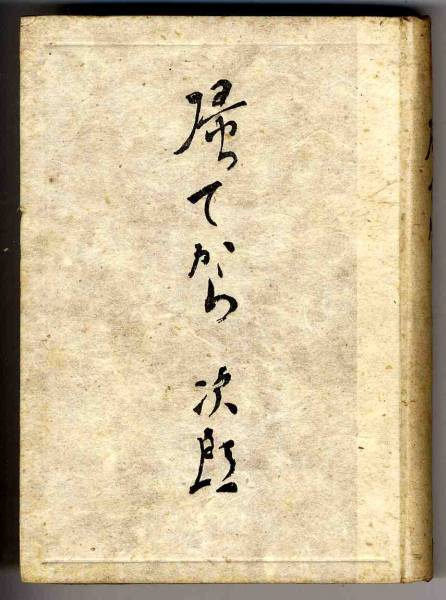 帰てから 次郎